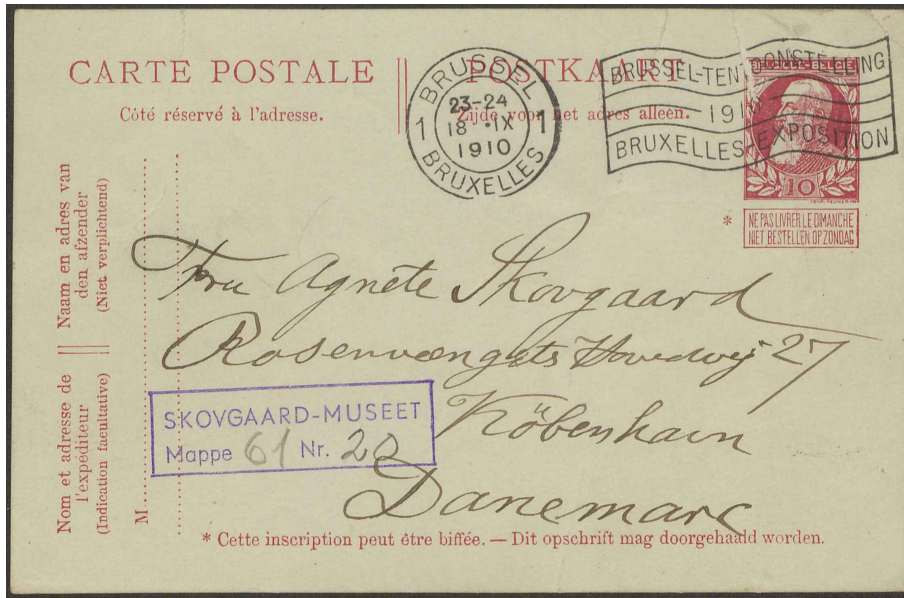 CARTE POSTALE
POSTKAART
Côté réservé à l'adresse.
Zijde voor het adres alleen.
BRUSSEL
23-24
1 18 · IX 1
1910
BRUXELLES
BRUSSEL-TENTOONSTELLING
1910
BRUXELLES-EXPOSITION
10
* NE PAS LIVRER LE DIMANCHE
NIET BESTELLEN OP ZONDAG
Naam en adres van
den afzender
(Niet verplichtend)
Nom et adresse de
l'expéditeur
(Indication facultative)
M
Fru Agnete Skovgaard
Rosenvængets Hovedvej 27
Köbenhavn
Danemarc
SKOVGAARD-MUSEET
Mappe 61 Nr. 20
* Cette inscription peut être biffée. — Dit opschrift mag doorgehaald worden.